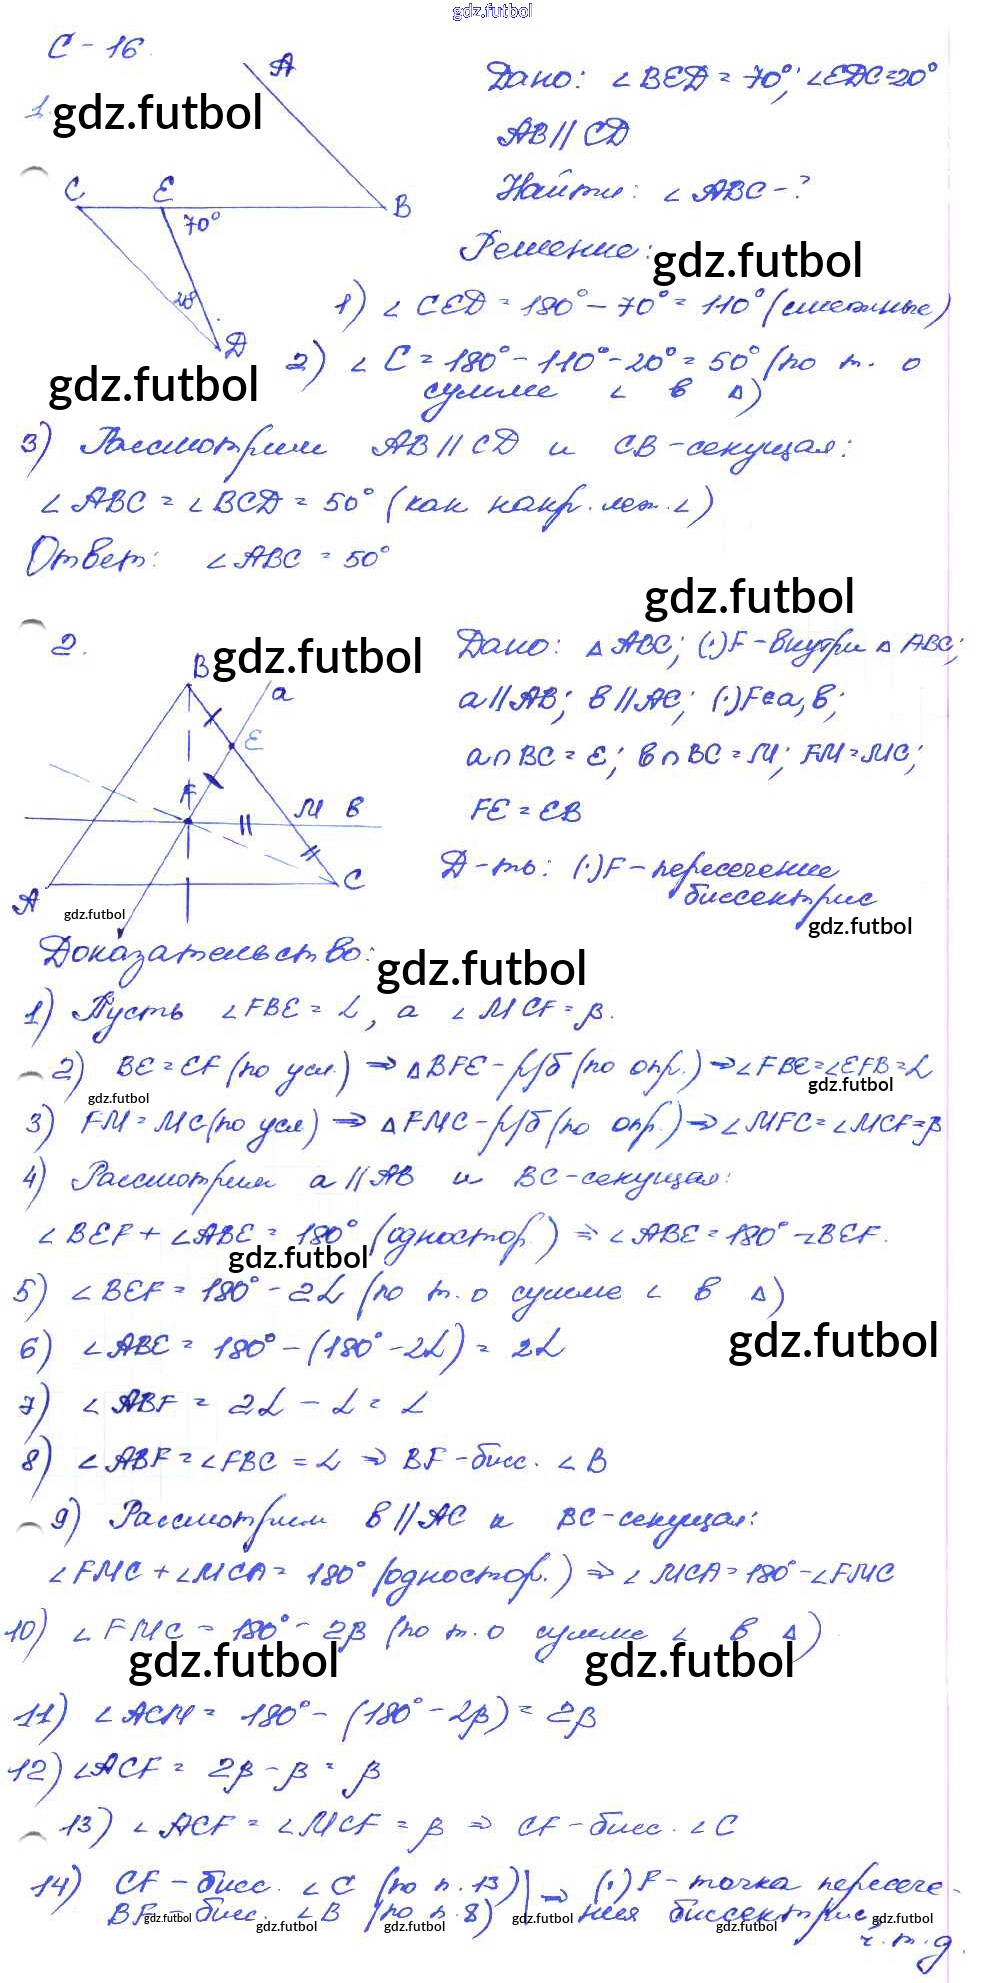 gdz.futbol
С - 16.
1. gdz.futbol
A
C E B
70°
20°
D
Дано: ∠BED = 70°; ∠EDC=20°
AB // CD
Найти: ∠ABC-?
Решение: gdz.futbol
1) ∠CED = 180° - 70° = 110° (смежные)
2) ∠C = 180° - 110° - 20° = 50° (по т. о
сумме ∠ в Δ)
gdz.futbol
3) Рассмотрим AB // CD и CB-секущая:
∠ABC = ∠BCD = 50° (как накр. леж. ∠)
Ответ: ∠ABC = 50°
gdz.futbol
2. gdz.futbol
B a
E
F M в
A C
gdz.futbol
Дано: Δ ABC; (·)F-внутри Δ ABC;
a // AB; в // AC; (·)F∈a, в;
a∩BC = E; в∩BC = M; FM=MC;
FE = EB
Д-ть: (·)F - пересечение
биссектрис
gdz.futbol
Доказательство: gdz.futbol
1) Пусть ∠FBE = α, а ∠MCF = β.
2) BE = EF (по усл.) ⇒ ΔBFE - р/б (по опр.) ⇒ ∠FBE=∠EFB=α
gdz.futbol gdz.futbol
3) FM = MC (по усл) ⇒ Δ FMC - р/б (по опр.) ⇒ ∠MFC = ∠MCF=β
4) Рассмотрим a // AB и BC-секущая:
∠BEF + ∠ABE = 180° (одностор.) ⇒ ∠ABE = 180° -∠BEF.
gdz.futbol
5) ∠BEF = 180° - 2α (по т. о сумме ∠ в Δ)
6) ∠ABE = 180° - (180° - 2α) = 2α
gdz.futbol
7) ∠ABF = 2α - α = α
8) ∠ABF = ∠FBC = α ⇒ BF - бисс. ∠B
9) Рассмотрим в // AC и BC-секущая:
∠FMC + ∠MCA = 180° (одностор.) ⇒ ∠MCA = 180° - ∠FMC
10) ∠FMC = 180° - 2β (по т. о сумме ∠ в Δ)
gdz.futbol gdz.futbol
11) ∠ACM = 180° - (180° - 2β) = 2β
12) ∠ACF = 2β - β = β
13) ∠ACF = ∠MCF = β ⇒ CF - бисс. ∠C
14) CF - бисс. ∠C (по п. 13) | ⇒ (·) F - точка пересече-
BF - бисс. ∠B (по п. 8) | ния биссектрис,
gdz.futbol gdz.futbol gdz.futbol gdz.futbol gdz.futbol gdz.futbol
ч.т.д.